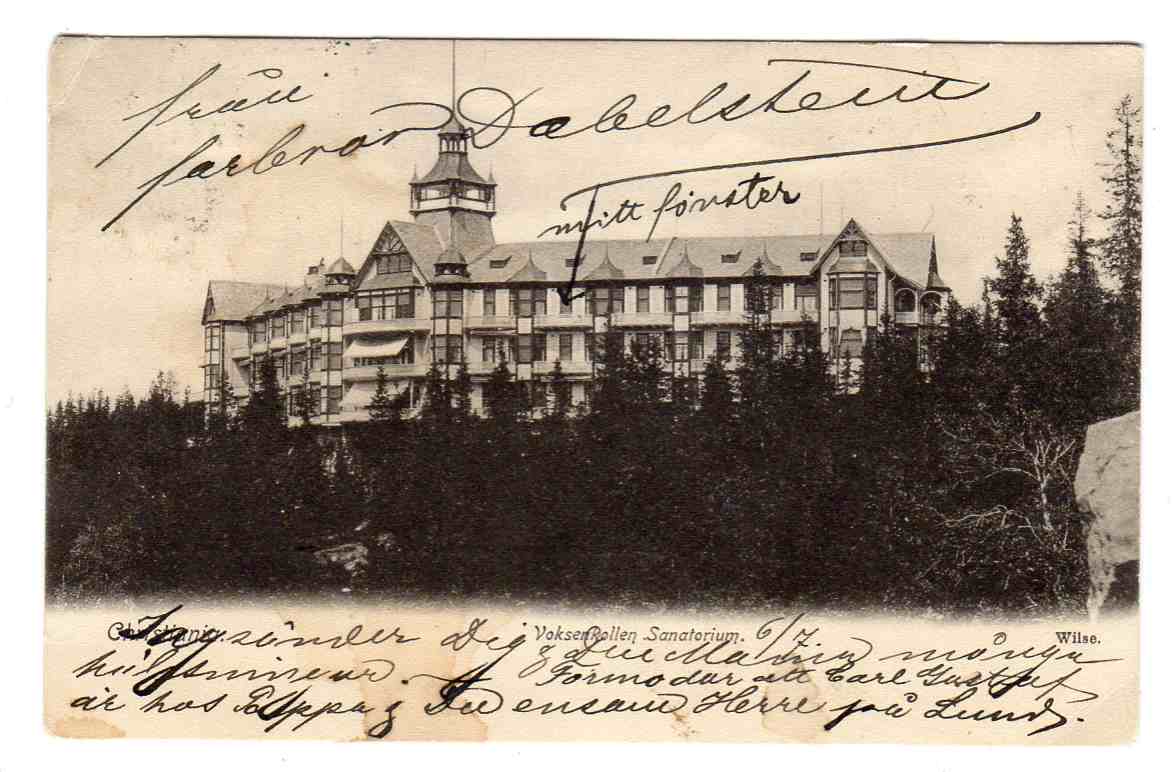 från
farbror Dabelstein
mitt fönster
Christiania. Voksenkollen Sanatorium. 6/7 Wilse.
Jag sänder Dig & många
hälsningar. Förmodar att Carl Gustaf
är hos Pappa & Du ensam Herre på Lund.